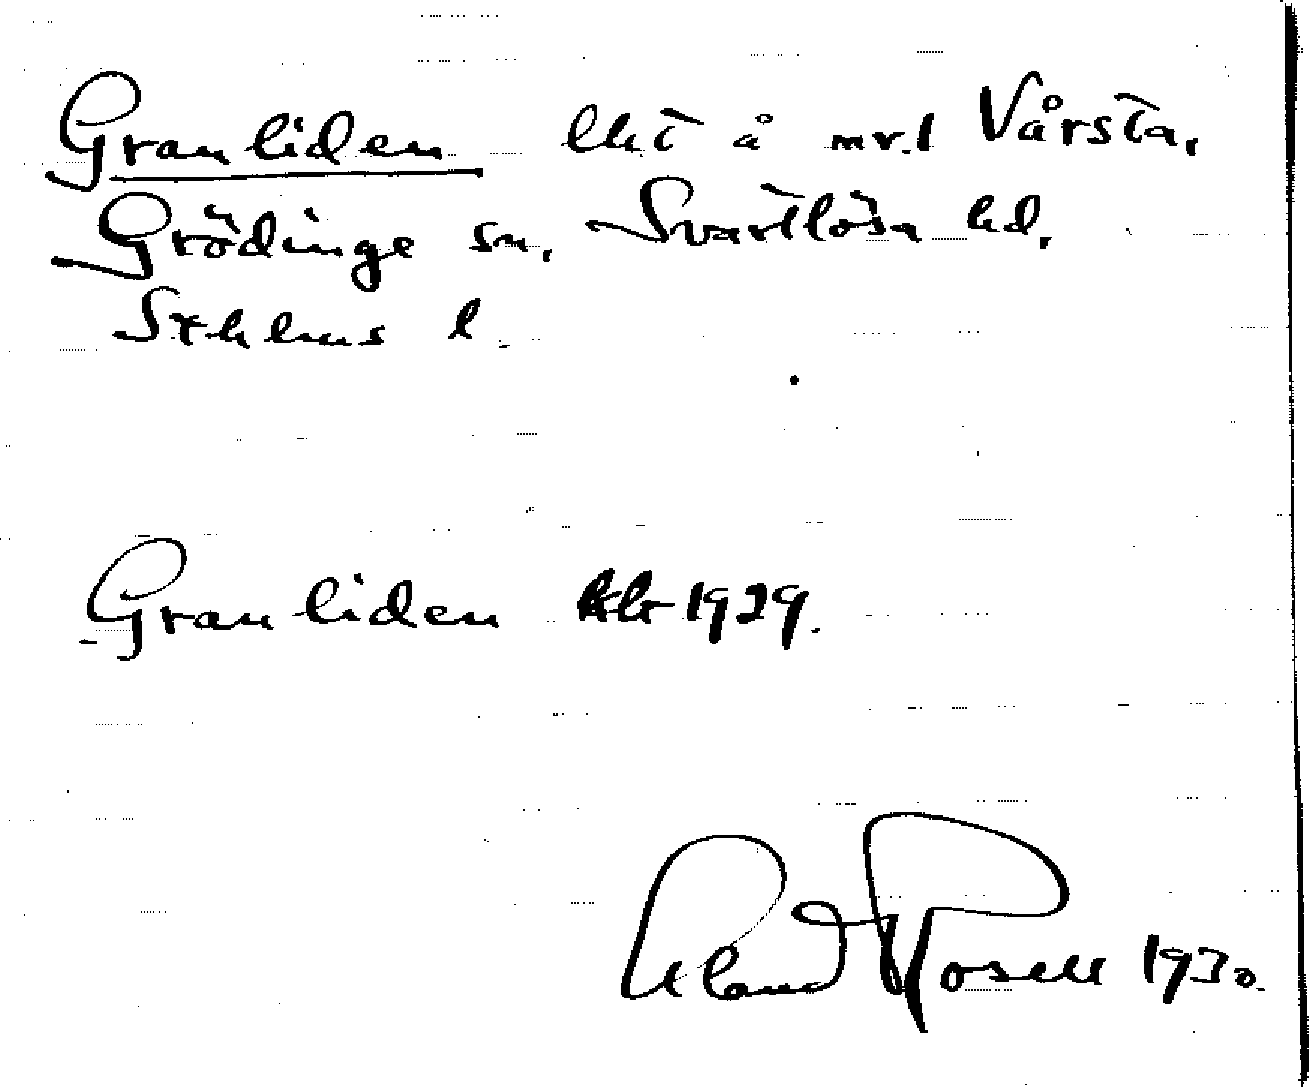 Granliden lht å mrl Vårsta,
Grödinge sn, Svartlösa hd,
Sthlms l.
Granliden Jbr 1929.
Rosell 1930.